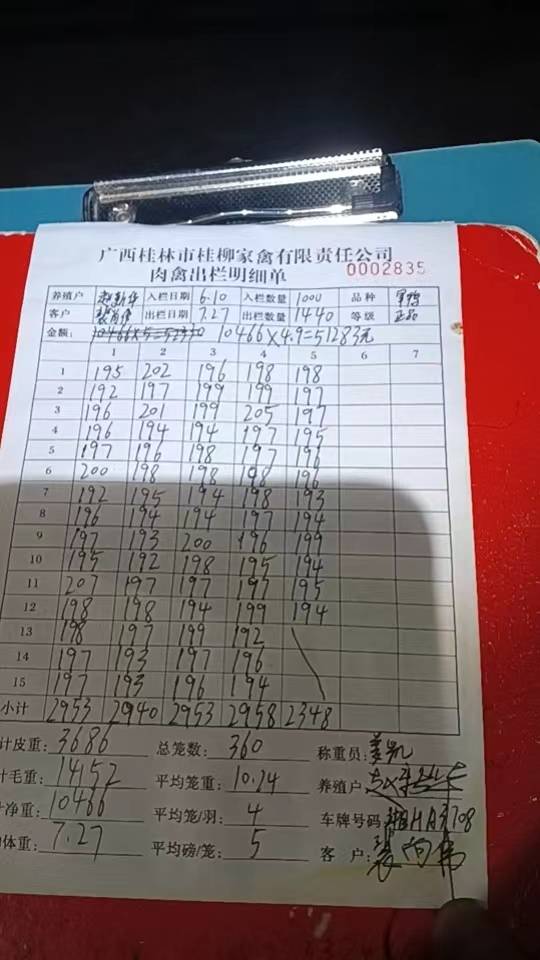 广西桂林市桂柳家禽有限责任公司
肉禽出栏明细单 0002835
养殖户 入栏日期 6.10 入栏数量 1000 品种
客户 出栏日期 7.27 出栏数量 1440 等级 正品
金额: 10466×4.9=51283元
1 2 3 4 5 6 7
1 195 202 196 198 198
2 192 197 199 199 197
3 196 201 199 205 197
4 196 194 194 197 195
5 197 196 198 197 196
6 200 198 198 198 196
7 192 195 194 198 193
8 196 194 194 197 194
9 197 193 200 196 199
10 195 192 198 195 194
11 207 197 197 197 195
12 198 198 194 199 194
13 198 197 199 192
14 197 193 197 196
15 197 193 196 194
小计 2953 2940 2953 2958 2348
计皮重: 3686 总笼数: 360 称重员:
计毛重: 14152 平均笼重: 10.24 养殖户
净重: 10466 平均笼/羽: 4 车牌号码
体重: 7.27 平均磅/笼: 5 客 户: